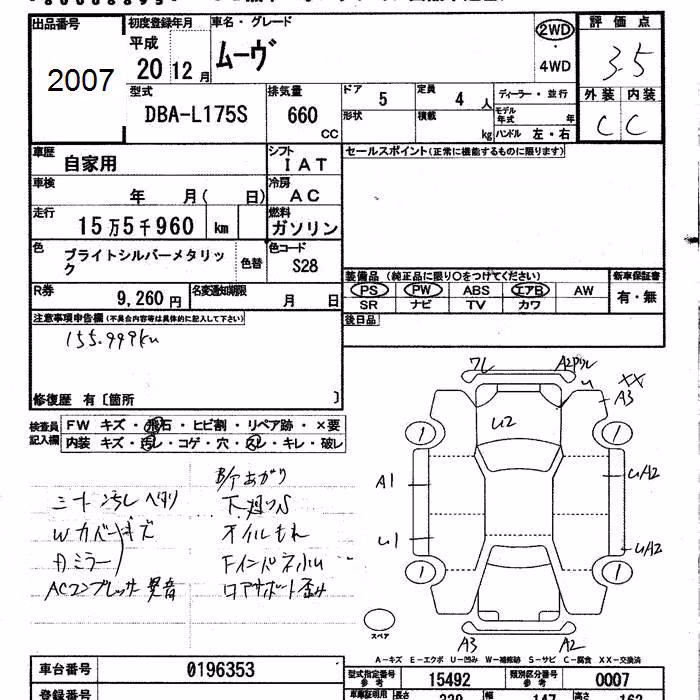 出品番号
2007
初度登録年月
平成
20 12月
車名・グレード
ムーヴ
2WD
・
4WD
評価点
3.5
外装 内装
C C
型式
DBA-L175S
排気量
660
CC
ドア
5
定員
4 人
ディーラー・並行
形状
積載
kg
モデル年式 年
ハンドル 左・右
車歴
自家用
シフト
IAT
車検
年 月( 日)
冷房
AC
走行
15万5千960 km
燃料
ガソリン
色
ブライトシルバーメタリック
色替
色コード
S28
R券
9,260 円
名変通知期限
月 日
セールスポイント(正常に機能するものに限ります)
装備品(純正品に限り○をつけてください)
PS PW ABS エアB AW
SR ナビ TV カワ
新車保証書
有・無
後日品
注意事項申告欄(不具合内容等は具体的に記入して下さい)
155.999km
修復歴 有〔箇所 〕
検査員記入欄
FW キズ・飛石・ヒビ割・リペア跡・×要
内装 キズ・汚レ・コゲ・穴・スレ・キレ・破レ
シート汚れ ヘタリ
Wカバーキズ
Dミラー
ACコンプレッサ異音
B/Tあがり
下廻りS
オイルもれ
Fインパネ小ム
ロアサポート歪み
ワレ
XX
A3
U2
A1
U1
U/A2
U/A2
1
1
1
1
A3
A2
スペア
A-キズ E-エクボ U-凹み W-補修跡 S-サビ C-腐食 XX-交換済
車台番号
0196353
型式指定番号
参考
15492
類別区分番号
参考
0007
登録番号
車庫証明用
参考
長さ
339
幅
147
高さ